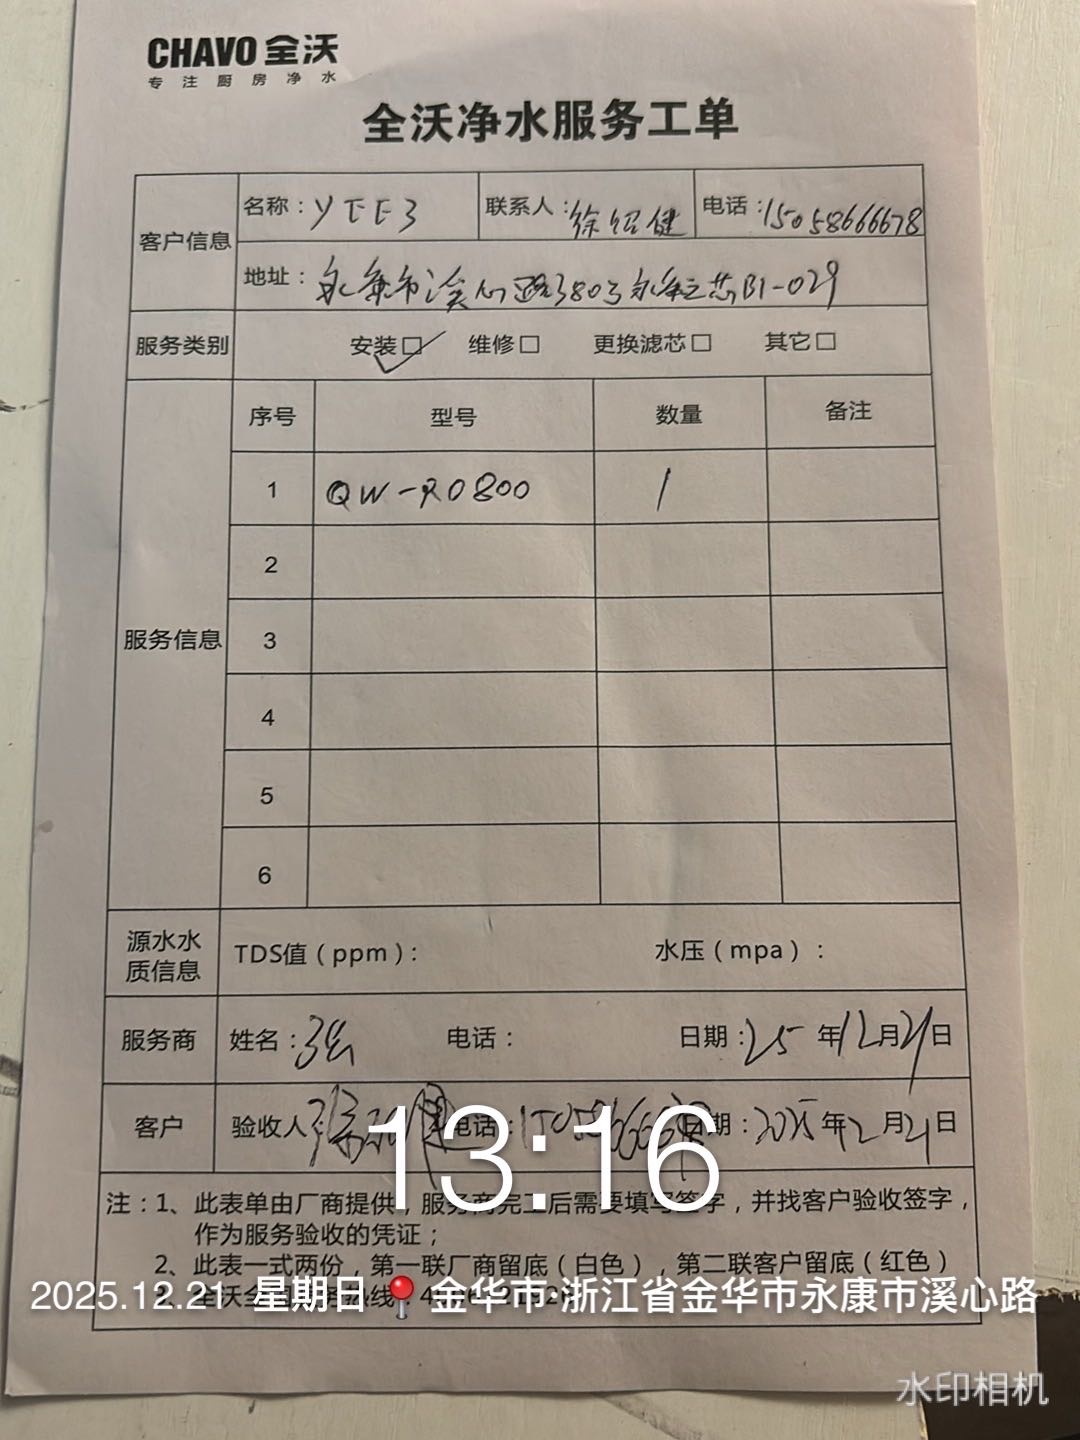 CHAVO 全沃
专注厨房净水
全沃净水服务工单
客户信息 名称：YEE3 联系人：徐绍健 电话：15058666678
地址：永康市溪心路3803 B1-029
服务类别 安装□ 维修□ 更换滤芯□ 其它□
服务信息
序号 型号 数量 备注
1 QW-RO800 1
2
3
4
5
6
源水水质信息 TDS值（ppm）： 水压（mpa）：
服务商 姓名： 电话： 日期：25年12月21日
客户 验收人： 电话： 日期：2025年12月21日
13:16
注：1、此表单由厂商提供，服务商完工后需要填写签字，并找客户验收签字，
作为服务验收的凭证；
2、此表一式两份，第一联厂商留底（白色），第二联客户留底（红色）
2025.12.21 星期日 金华市·浙江省金华市永康市溪心路
水印相机